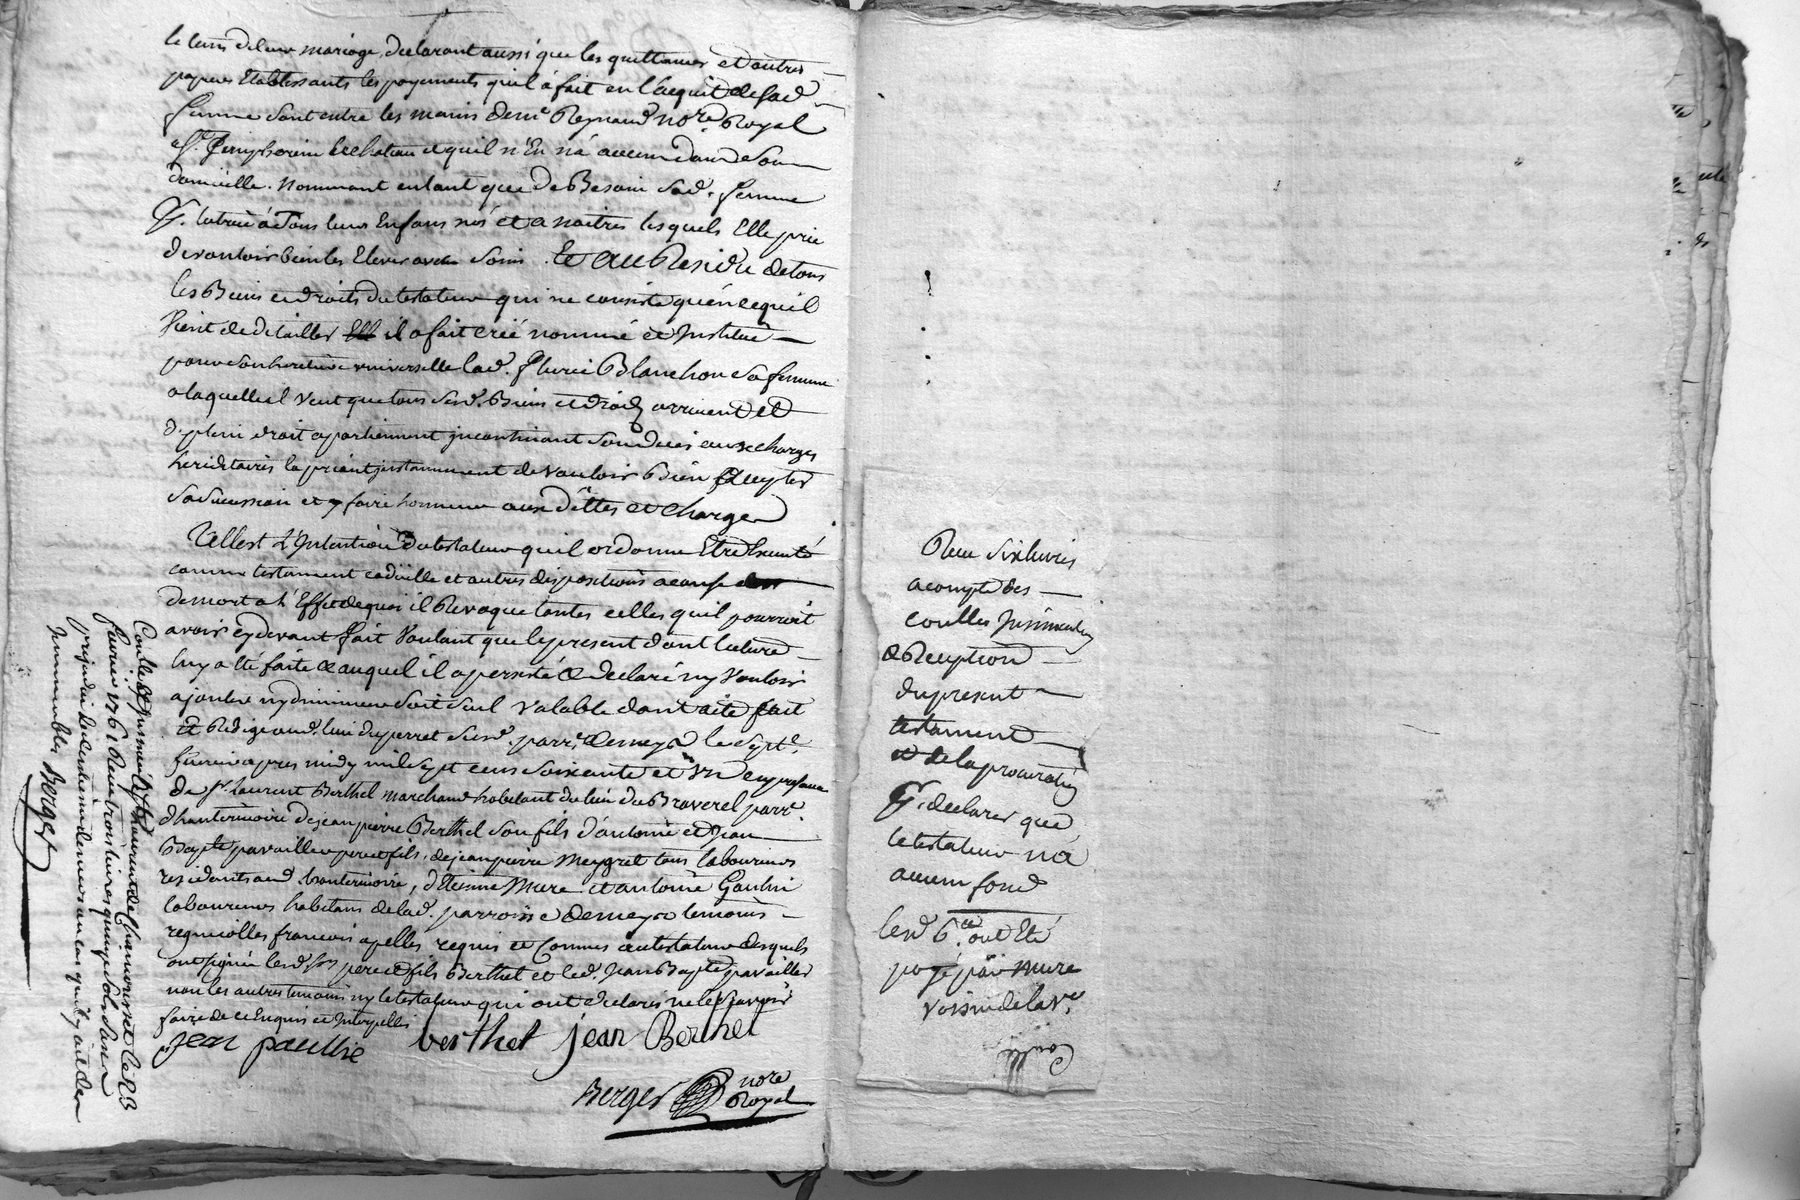 le tems de leur mariage, declarant aussi que les quittances et autres
papiers Etablissants les payements quil à fait en l'acquit de sad.
femme sont entre les mains de me Reynaud nore. Royal
a St. Simphorien le chateau et quil n'En n'a aucun dans son
domicille. nommant entant que de Besoin sad. femme
tutrice à Tous leurs Enfans nés et a naitres lesquels Elle prie
de vouloir bien les Elever avec soin. Et au Residu de tous
les Biens et droits du testateur qui ne consiste qu'en ce quil
vient de detailler il a fait créé nommé et Institué
pour son heritiere universelle lad. fleurie Blanchon sa femme
a laquelle il veut que tous sesd. Biens et droits arrivent et
de plein droit apartiennent incontinant son deces aux charges
hereditaires la priant instamment de vouloir Bien accepter
sa succession et y faire honneur aux dettes et charges
Telle est L'Intention du testateur quil ordonne Etre Executé
comme testament codicille et autres dispositions a cause
de mort a l'Effet de quoi il Revoque toutes celles quil pourroit
avoir cy devant fait voulant que le present dont lecture
luy a Eté faite et auquel il a persisté et declaré ny vouloir
ajouter ny diminuer soit seul valable dont acte fait
et Redigé aud. lieu du perret susd. parre. de meys le sept
fevrier apres midy mil sept cens soixante et un en presence
de sr. Laurent Berthet marchand habitant du lieu du Braverel parre.
d'hauterivoire de jean pierre Berthet son fils d'antoine et Jean
Bapte pavailler pere et fils, de jean pierre Meygret tous laboureurs
residants aud. hauterivoire, d'Etienne Mure et antoine Goutin
laboureurs habitans de lad. parroisse de meys temoins
regnicolles francois apelles requis et Connus au testateur desquels
ont signé lesd. srs pere et fils Berthet et led. Jean Bapte pavailler
non les autres temoins ny le testateur qui ont declarés ne le sçavoir
faire de ce Enquis et Interpellés
jean pallie berthet jean Berthet
Berger nore
Royal
Conllé et Insinué à St. Laurent de Chamousset le 23
fevrier 1761 Reçu trois livres quinze sols sans
prejudice du dentieme denier en cas qu'il y ait des
Immeubles Berger
Reçu six livres
acompte des
conlles Insinuation
et Reception
du present
testament
et de la procuration
declarer que
le testateur n'a
aucun fond
lesd. 6 ll ont Eté
payé par mure
voisin de la ve.